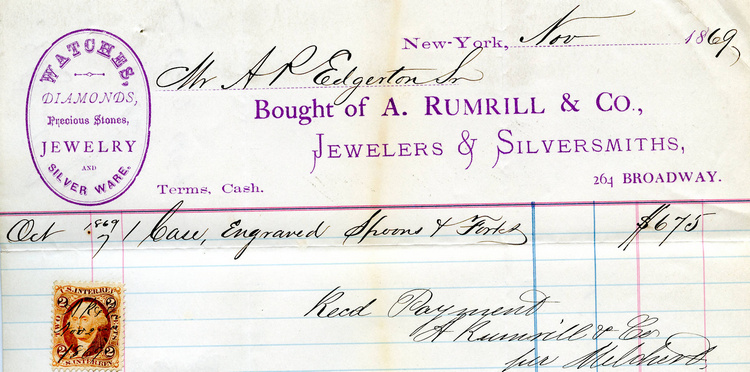 WATCHES,
DIAMONDS,
Precious Stones,
JEWELRY
AND
SILVER WARE.
New-York, Nov 1869
Mr A P Edgerton Sr
Bought of A. RUMRILL & CO.,
JEWELERS & SILVERSMITHS,
264 BROADWAY.
Terms, Cash.
Oct 1869 7 1 Case, Engraved Spoons & Forks $675
Recd Payment
A Rumrill & Co
per
2 U.S. INTER. REV. 2
TWO CENTS
2 U.S. INTER. REV. 2